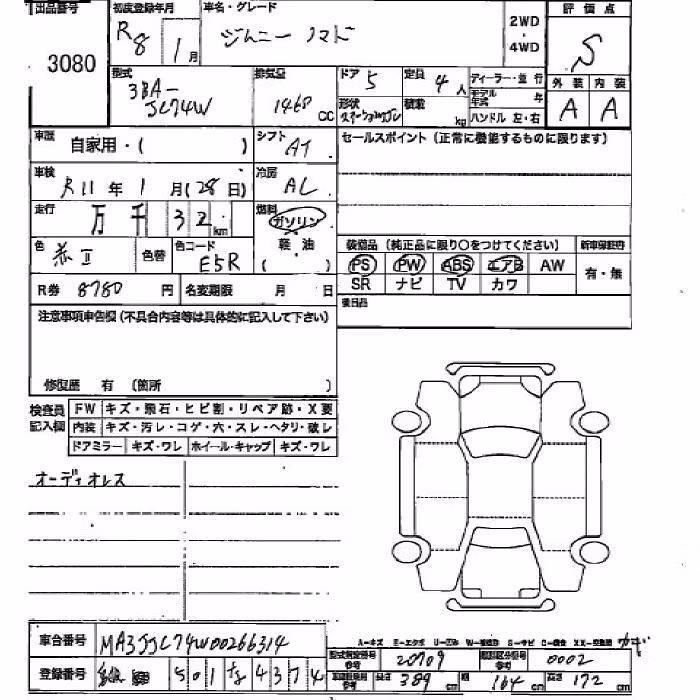 出品番号 初度登録年月 車名・グレード 評価点
3080 R8 1月 ジムニー ノマド 2WD ・ 4WD S
型式 排気量 ドア 5 定員 4人 ディーラー・並行 外装 内装
3BA- モデル年式 年 A A
JC74W 1460 CC 形状 積載 kg ハンドル 左・右
車歴 自家用・( ) シフト AT セールスポイント (正常に機能するものに限ります)
車検 R11年 1月 (28日) 冷房 AC
走行 万 千 32 km 燃料 ガソリン
軽・油
( )
色 赤II 色替 色コード E5R
装備品 (純正品に限り○をつけてください) 新車保証書
PS PW ABS エアB AW 有・無
SR ナビ TV カワ
R券 8780 円 名変期限 月 日 後日品
注意事項申告欄 (不具合内容等は具体的に記入して下さい)
修復歴 有 (箇所 )
検査員記入欄 FW キズ・飛石・ヒビ割・リペア跡・X要
内装 キズ・汚レ・コゲ・穴・スレ・ヘタリ・破レ
ドアミラー キズ・ワレ ホイール・キャップ キズ・ワレ
オーディオレス
車台番号 MA3JJC74W00266314
A-キズ E-エクボ U-凹 W-波 S-サビ C-腐食 XX-交換済
型式指定番号 参考 20709 類別区分番号 参考 0002
登録番号 501 4374
長さ 389 cm 幅 164 cm 高さ 172 cm